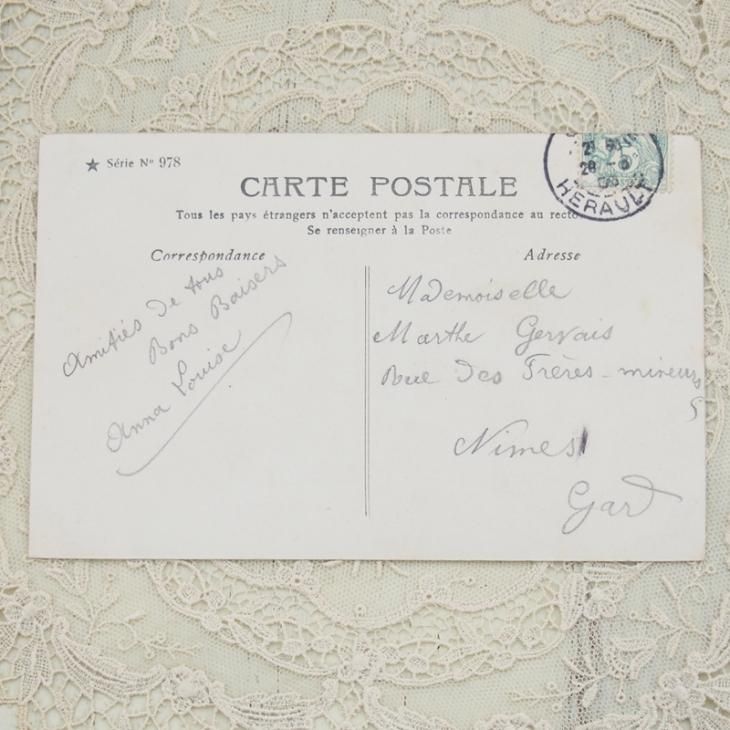 ★ Série Nº 978
CARTE POSTALE
Tous les pays étrangers n'acceptent pas la correspondance au recto
Se renseigner à la Poste
Correspondance
Amitiés de tous
Bons Baisers
Anna Louise
Adresse
Mademoiselle
Marthe Gervais
Rue des Frères-mineurs
5
Nimes
Gard
HERAULT